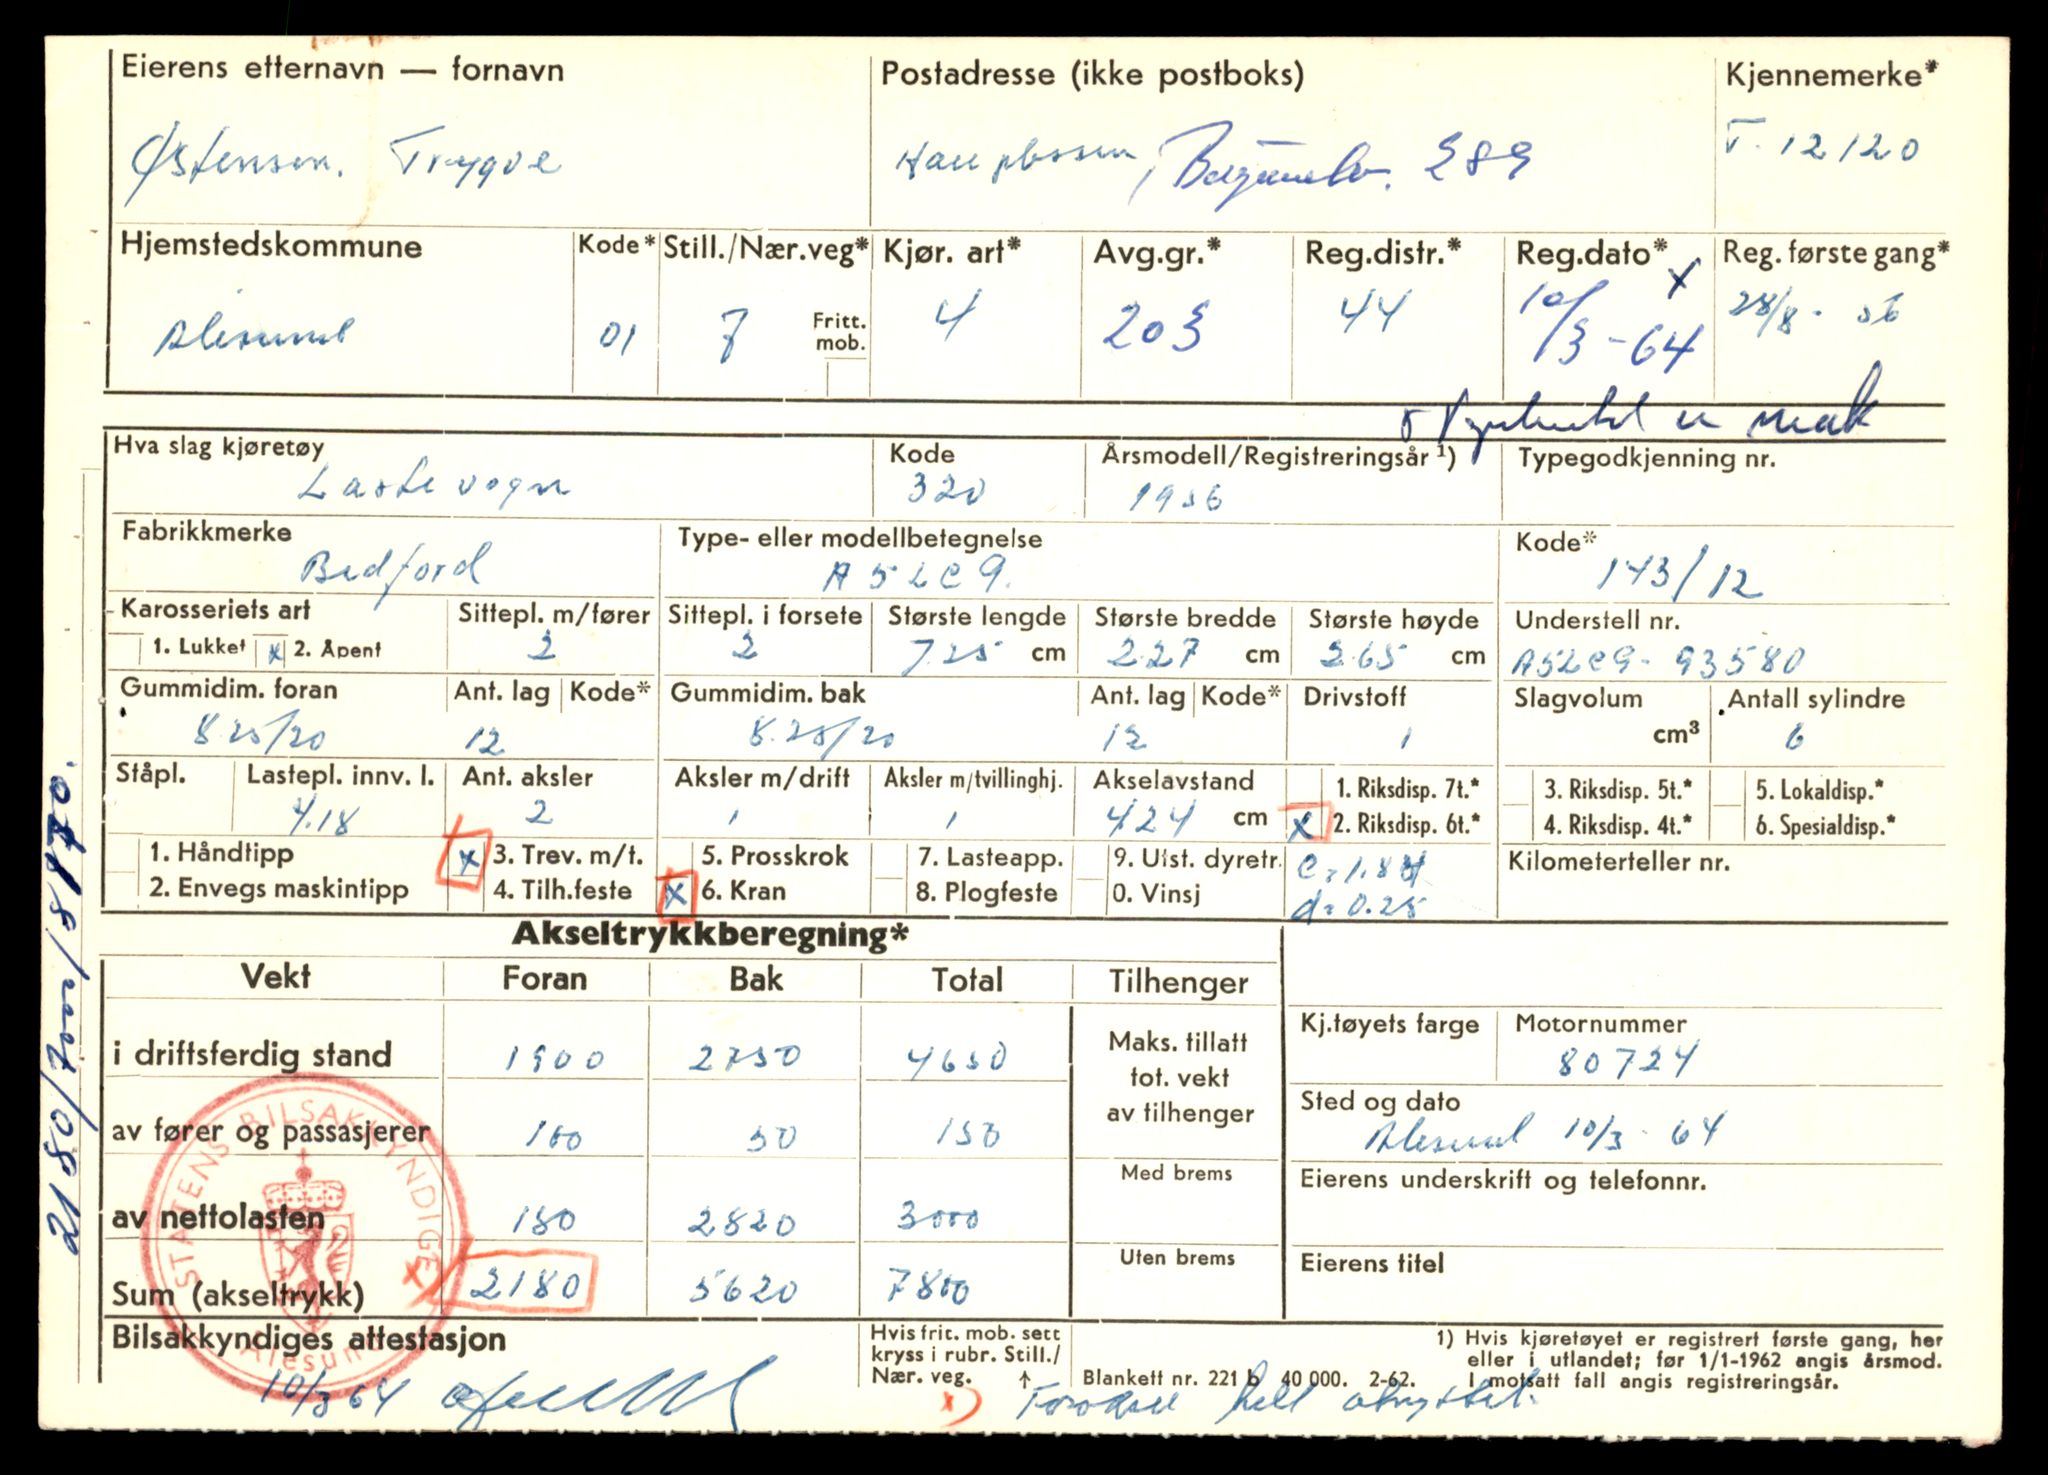 Eierens etternavn — fornavn Postadresse (ikke postboks) Kjennemerke*
Østensen. Trygve T- 12120
Hjemstedskommune Kode* Still./Nær.veg* Kjør. art* Avg.gr.* Reg.distr.* Reg.dato* Reg. første gang*
Ålesund 01 7 Fritt. mob. 4 203 44 10/3-64 x 28/8 - 56
Hva slag kjøretøy Kode Årsmodell/Registreringsår 1) Typegodkjenning nr.
Lastevogn 320 1956
Fabrikkmerke Type- eller modellbetegnelse Kode*
Bedford A52C9. 143/12
Karosseriets art Sittepl. m/fører Sittepl. i forsete Største lengde Største bredde Største høyde Understell nr.
1. Lukket x 2. Åpent 2 2 7.25 cm 2.27 cm 2.65 cm A52C9- 93580
Gummidim. foran Ant. lag Kode* Gummidim. bak Ant. lag Kode* Drivstoff Slagvolum Antall sylindre
8.25/20 12 8.25/20 12 1 cm³ 6
Ståpl. Lastepl. innv. l. Ant. aksler Aksler m/drift Aksler m/tvillinghj. Akselavstand 1. Riksdisp. 7t.* 3. Riksdisp. 5t.* 5. Lokaldisp.*
4.18 2 1 1 4.24 cm x 2. Riksdisp. 6t.* 4. Riksdisp. 4t.* 6. Spesialdisp.*
1. Håndtipp x 3. Trev. m/t. 5. Prosskrok 7. Lasteapp. 9. Utst. dyretr. Kilometerteller nr.
2. Envegs maskintipp 4. Tilh.feste x 6. Kran 8. Plogfeste 0. Vinsj d= 0.25
Akseltrykkberegning*
Vekt Foran Bak Total Tilhenger
Kj.tøyets farge Motornummer
i driftsferdig stand 1900 2750 4650 Maks. tillatt 80724
tot. vekt
Sted og dato
av fører og passasjerer 100 50 150 av tilhenger Ålesund 10/3- 64
Med brems Eierens underskrift og telefonnr.
av nettolasten 180 2820 3000
Uten brems Eierens titel
Sum (akseltrykk) x 2180 5620 7800
STATENS BILSAKKYNDIGE
Ålesund
Bilsakkyndiges attestasjon Hvis frit. mob. sett 1) Hvis kjøretøyet er registrert første gang, her
kryss i rubr. Still./ eller i utlandet; før 1/1-1962 angis årsmod.
Nær. veg. ↑ Blankett nr. 221 b 40 000. 2-62. I motsatt fall angis registreringsår.
10/3 64 x) helt